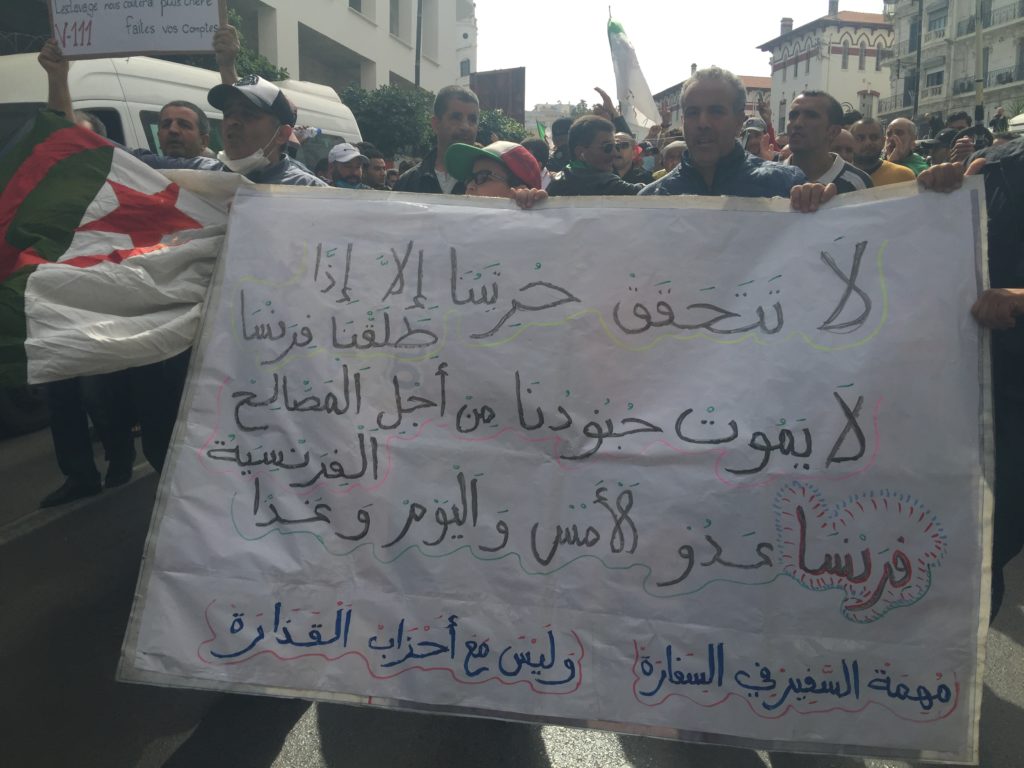 L'esclavage nous coûtera plus chère
V-111 faites vos comptes
لاَ تَتَحَقَقْ حُرِيَتُنَا إِلاَّ إِذَا
طَلَقْنَا فَرَنْسَا
لاَ يَمُوتْ جُنُودُنَا مِنْ أَجْلِ الْمَصَالِحْ
الْفِرَنْسِيَةْ
فَرَنْسَا عَدُوُ الأَمْسْ وَالْيَوْمْ وَغَدًا
مُهِمَةْ السَّفِيرْ فِي السَفَارَةْ
وَلَيْسَ مَعَ أَحْزَابْ الْقَذَارَةْ